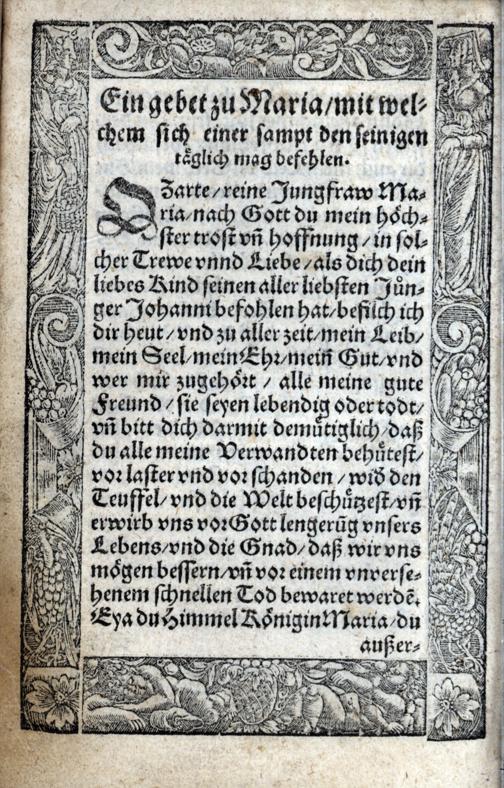 Ein gebet zu Maria/mit wel-
chem sich einer sampt den seinigen
täglich mag befehlen.
O Zarte/reine Jungfraw Ma-
ria/nach Gott du mein höch-
ster trost vñ hoffnung/in sol-
cher Trewe vnnd Liebe/als dich dein
liebes Kind seinen aller liebsten Jün-
ger Johanni befohlen hat/befilch ich
dir heut/vnd zu aller zeit/mein Leib/
mein Seel/mein Ehr/mein Gut/vnd
wer mir zugehört/alle meine gute
Freund/sie seyen lebendig oder todt/
vñ bitt dich darmit demütiglich/daß
du alle meine Verwandten behütest/
vor laster vnd vor schanden/wid̃ den
Teuffel/vnd die Welt beschützest/vñ
erwirb vns vor Gott lengerũg vnsers
Lebens/vnd die Gnad/daß wir vns
mögen bessern/vñ vor einem vnverse-
henem schnellen Tod bewaret werdẽ.
Eya du Himmel Königin Maria/du
außer-